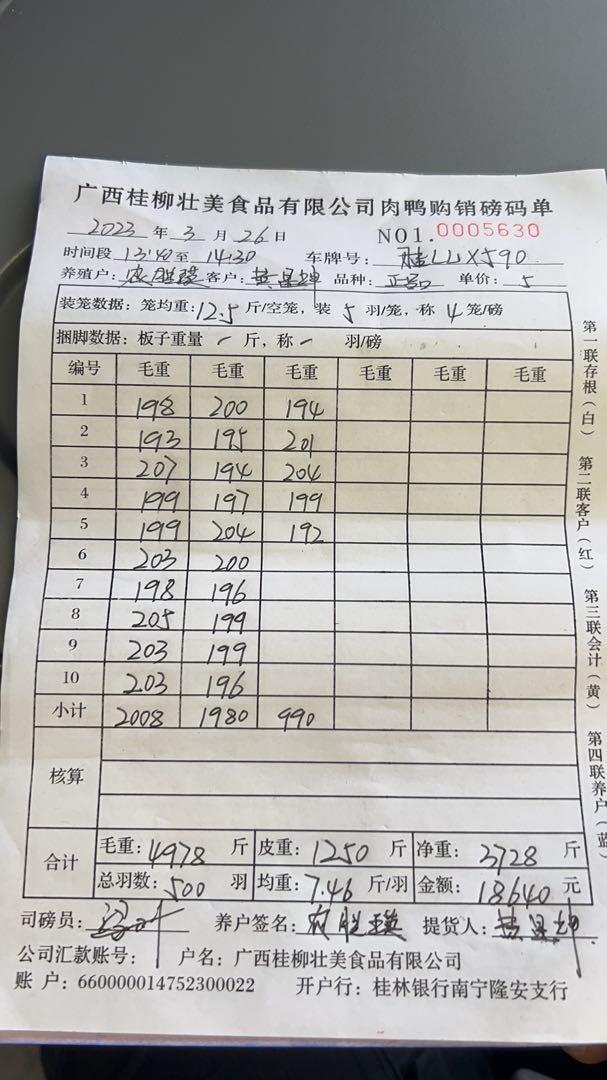 广西桂柳壮美食品有限公司肉鸭购销磅码单
2023 年 3 月 26 日 NO1.0005630
时间段 13:40 至 14:30 车牌号: 桂LLX590
养殖户: 农胜瑛 客户: 黄昌坤 品种: 单价: 5
装笼数据: 笼均重: 12.5 斤/空笼, 装 5 羽/笼, 称 4 笼/磅
捆脚数据: 板子重量 / 斤, 称 / 羽/磅
编号 毛重 毛重 毛重 毛重 毛重 毛重
1 198 200 194
2 193 195 201
3 207 194 204
4 199 197 199
5 199 204 192
6 203 200
7 198 196
8 205 199
9 203 199
10 203 196
小计 2008 1980 990
核算
合计 毛重: 4978 斤 皮重: 1250 斤 净重: 3728 斤
总羽数: 500 羽 均重: 7.46 斤/羽 金额: 18640 元
司磅员: 养户签名: 农胜瑛 提货人: 黄昌坤
公司汇款账号: 户名: 广西桂柳壮美食品有限公司
账 户: 660000014752300022 开户行: 桂林银行南宁隆安支行
第一联存根(白) 第二联客户(红) 第三联会计(黄) 第四联养户(蓝)